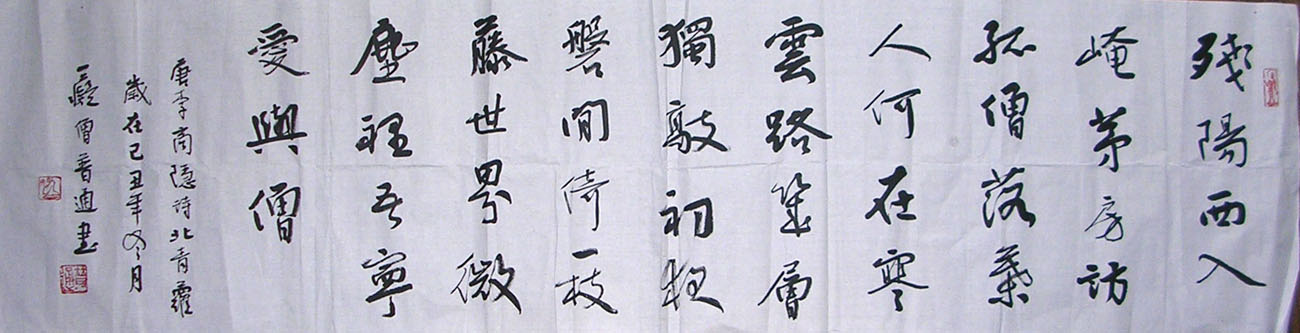 殘陽西入
崦茅房訪
孤僧落葉
人何在寒
雲路幾層
獨敲初夜
磬閒倚一枝
藤世界微
塵裡吾寧
愛與僧
唐李商隱詩北青蘿
歲在己丑年冬月
一癡僧普適書